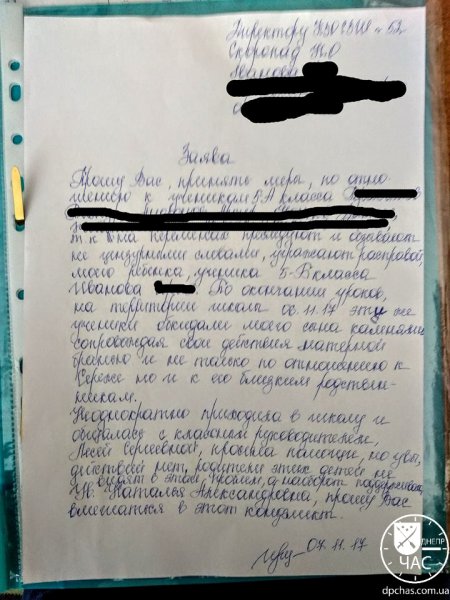 Директору КЗО СЗШ № 52
Скоропад Н.О
Иванова
Заява
Прошу Вас, принять меры, по отно
шению к ученикам 5-А класса
т.к. на переменах преследуют и обзывают
не цензурными словами, угражают расправой,
моего ребенка, ученика 5-В класса
Иванова По окончании уроков,
на территории школы 06.11.17 эту же
ученики закидали моего сына камнями
сопровождая свои действия матерной
бранью и не только по отношению к
Сереже но и к его близким родствен-
никам.
Неоднократно приходила в школу и
общалась с классным руководителем,
Лесей Сергеевной, просила помощи, но увы,
действий нет, родители этих детей не
видят в этом проблем, а наоборот поддерживают,
Ув. Наталья Александровна, прошу Вас
вмешаться в этот конфликт.
07.11.17
ДНЕПР
ЧАС
dpchas.com.ua